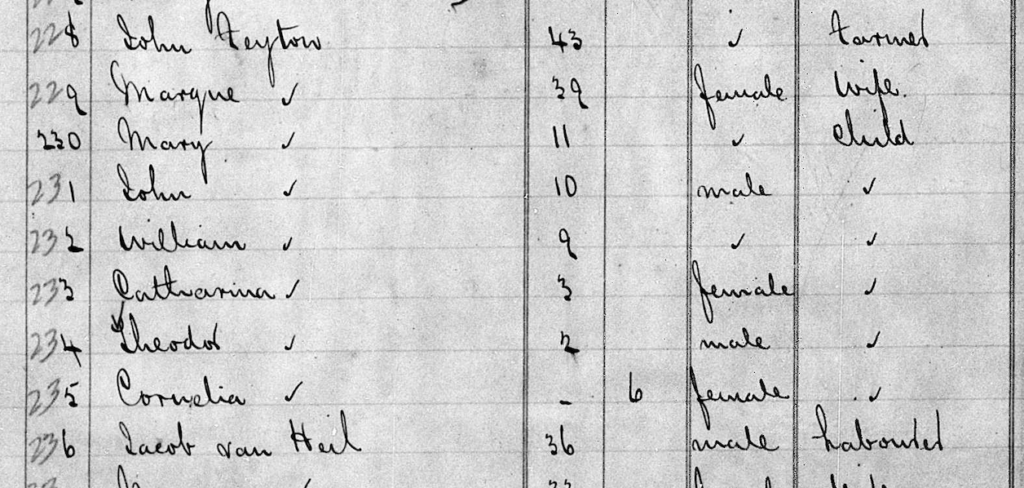 228 John Feytow 43 ✓ farmer
229 Marque ✓ 39 female wife.
230 Mary ✓ 11 ✓ child
231 John ✓ 10 male ✓
232 William ✓ 9 ✓ ✓
233 Catharina ✓ 3 female ✓
234 Theodor ✓ 2 male ✓
235 Cornelia ✓ - 6 female ✓
236 Jacob van Heil 36 male Labourer